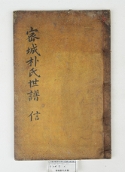 密城朴氏世譜 信